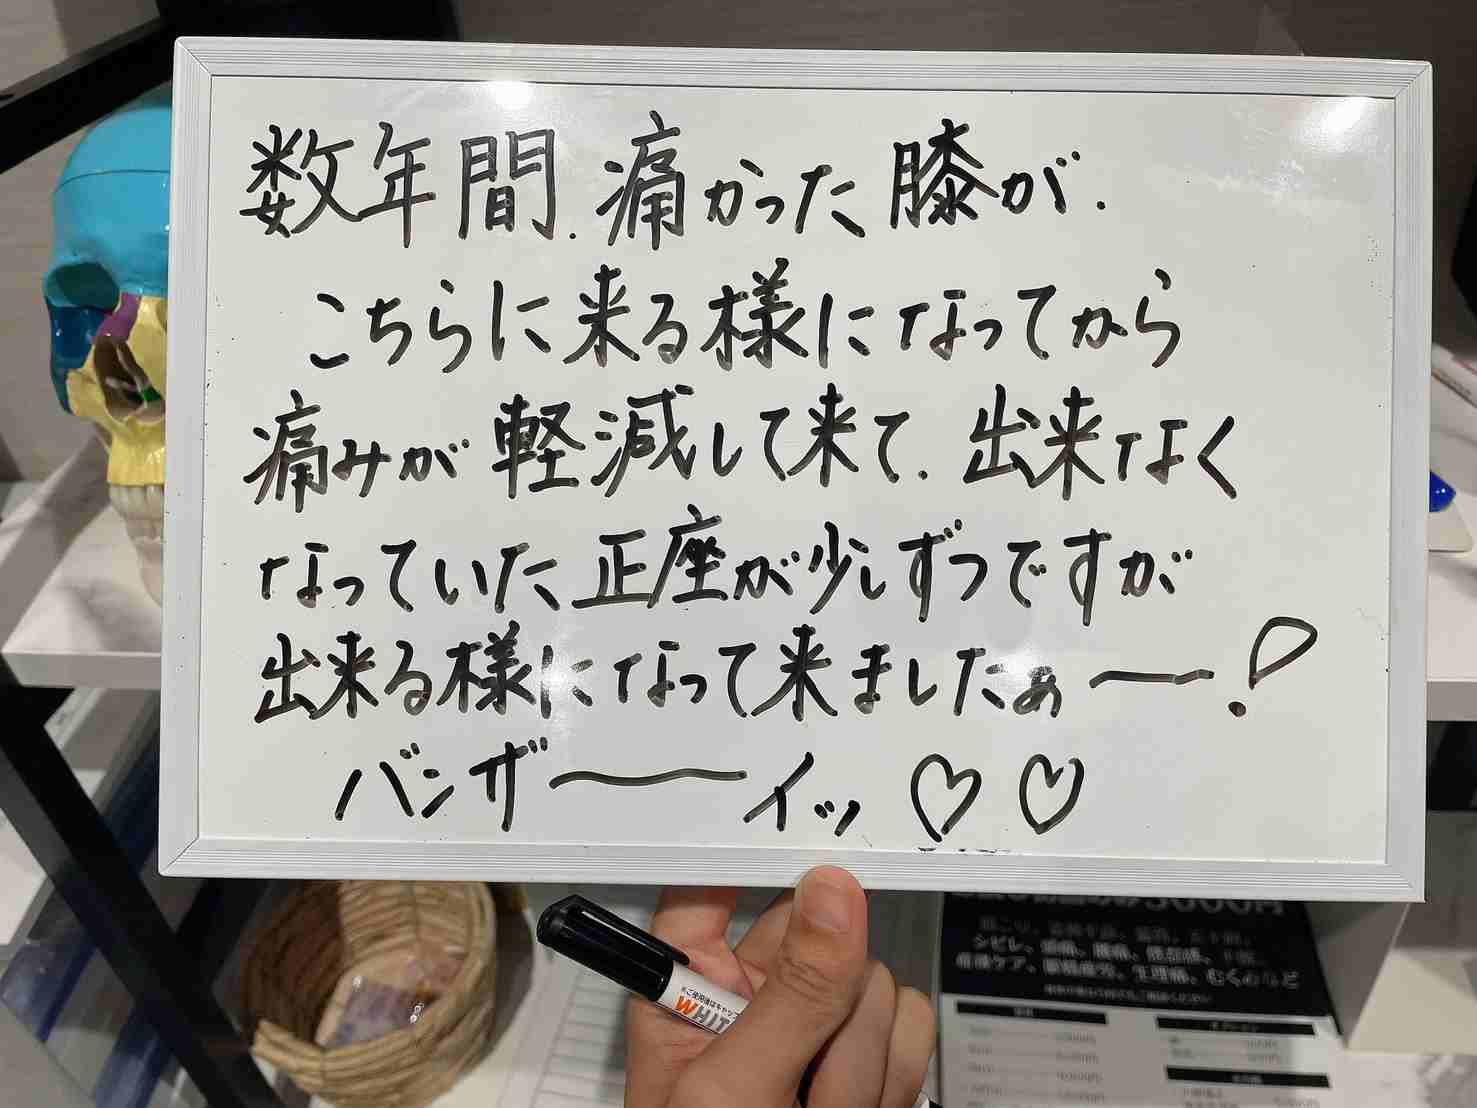 数年間.痛かった膝が.
こちらに来る様になってから
痛みが軽減して来て.出来なく
なっていた正座が少しずつですが
出来る様になって来ましたぁ〜!
バンザ〜イッ♡♡
※ご使用後はキャップ
WHIT
シビレ、頭痛、腰痛、
産後ケア、眼精疲労、生理痛、むくみなど